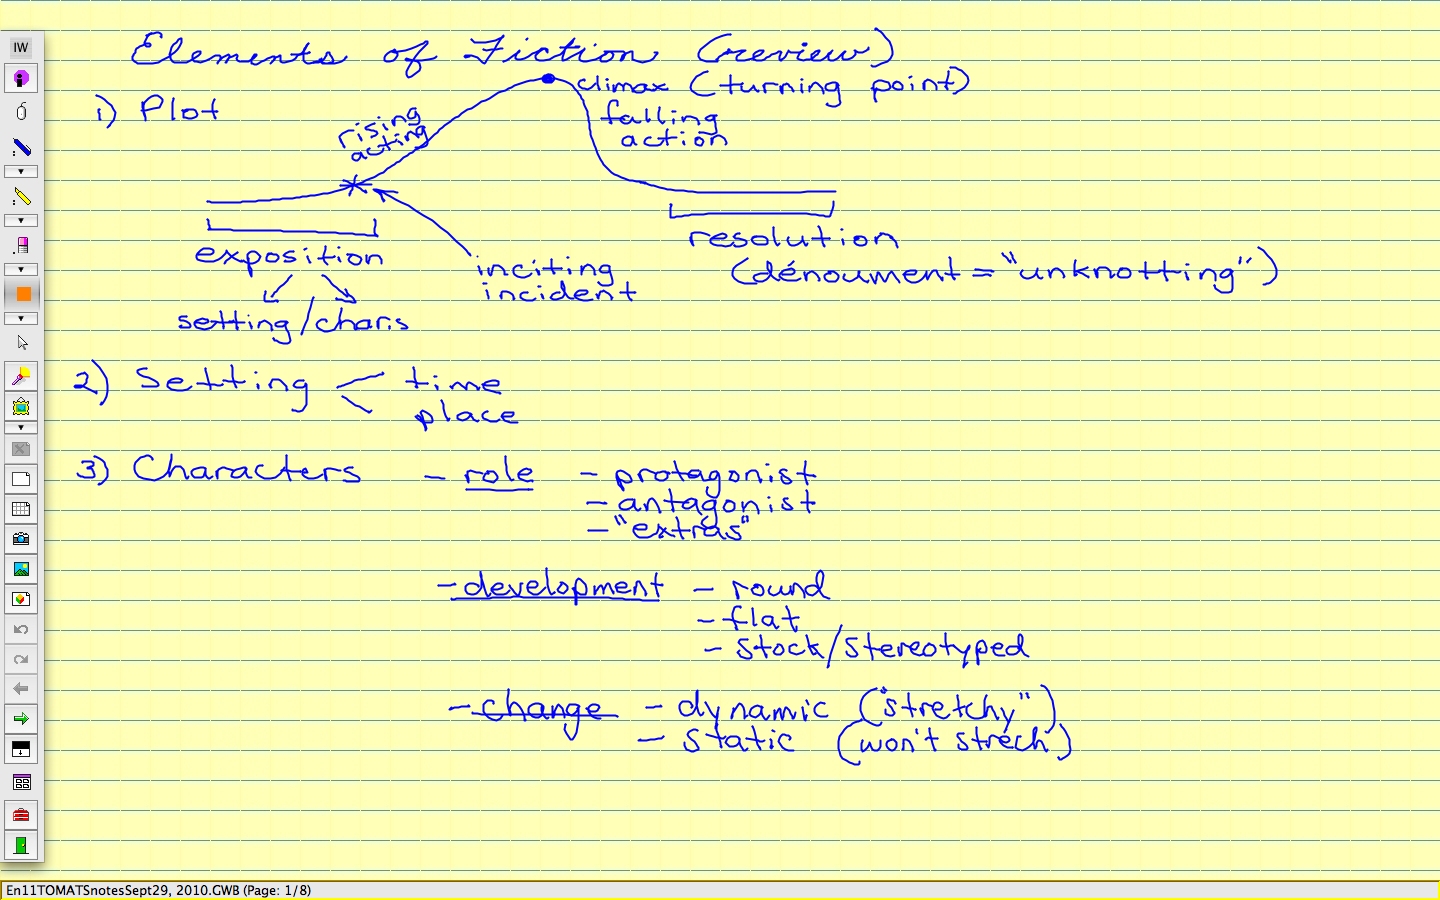 IW
Elements of Fiction (review)
1) Plot
climax (turning point)
rising
acting
falling
action
exposition
setting/chars
inciting
incident
resolution
(dénoument = "unknotting")
2) Setting
time
place
3) Characters - role - protagonist
- antagonist
- "extras"
- development - round
- flat
- stock/stereotyped
- change - dynamic ("stretchy")
- static (won't strech)
En11TOMATSnotesSept29, 2010.GWB (Page: 1/8)